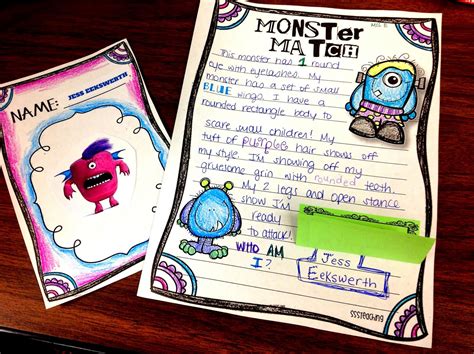 NAME:
JESS EEKSWERTH
MONSTER
MATCH
This monster has 1 round
eye with eyelashes. My
monster has a set of small
BLUE wings. I have a
rounded rectangle body to
scare small children! My
tuft of purple hair shows off
my style. I'm showing off my
gruesome grin with rounded teeth.
My 2 legs and open stance
show I'm
ready
to attack!
WHO AM
I?
Jess
Eekswerth
SSSTeaching